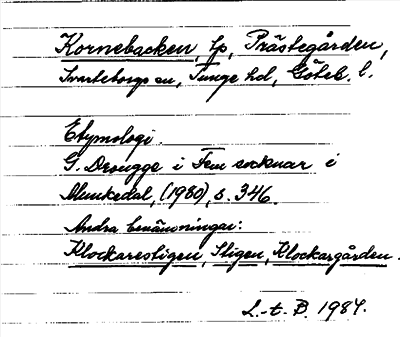 Kornebacken, lp, Prästegården,
Svarteborgs sn, Tunge hd, Göteb. l.
Etymologi.
G. Drougge i Fem socknar i
Munkedal, (1980), s. 346.
Andra benämningar:
Klockarestigen, Stigen, Klockargården.
L.-t. B. 1984.